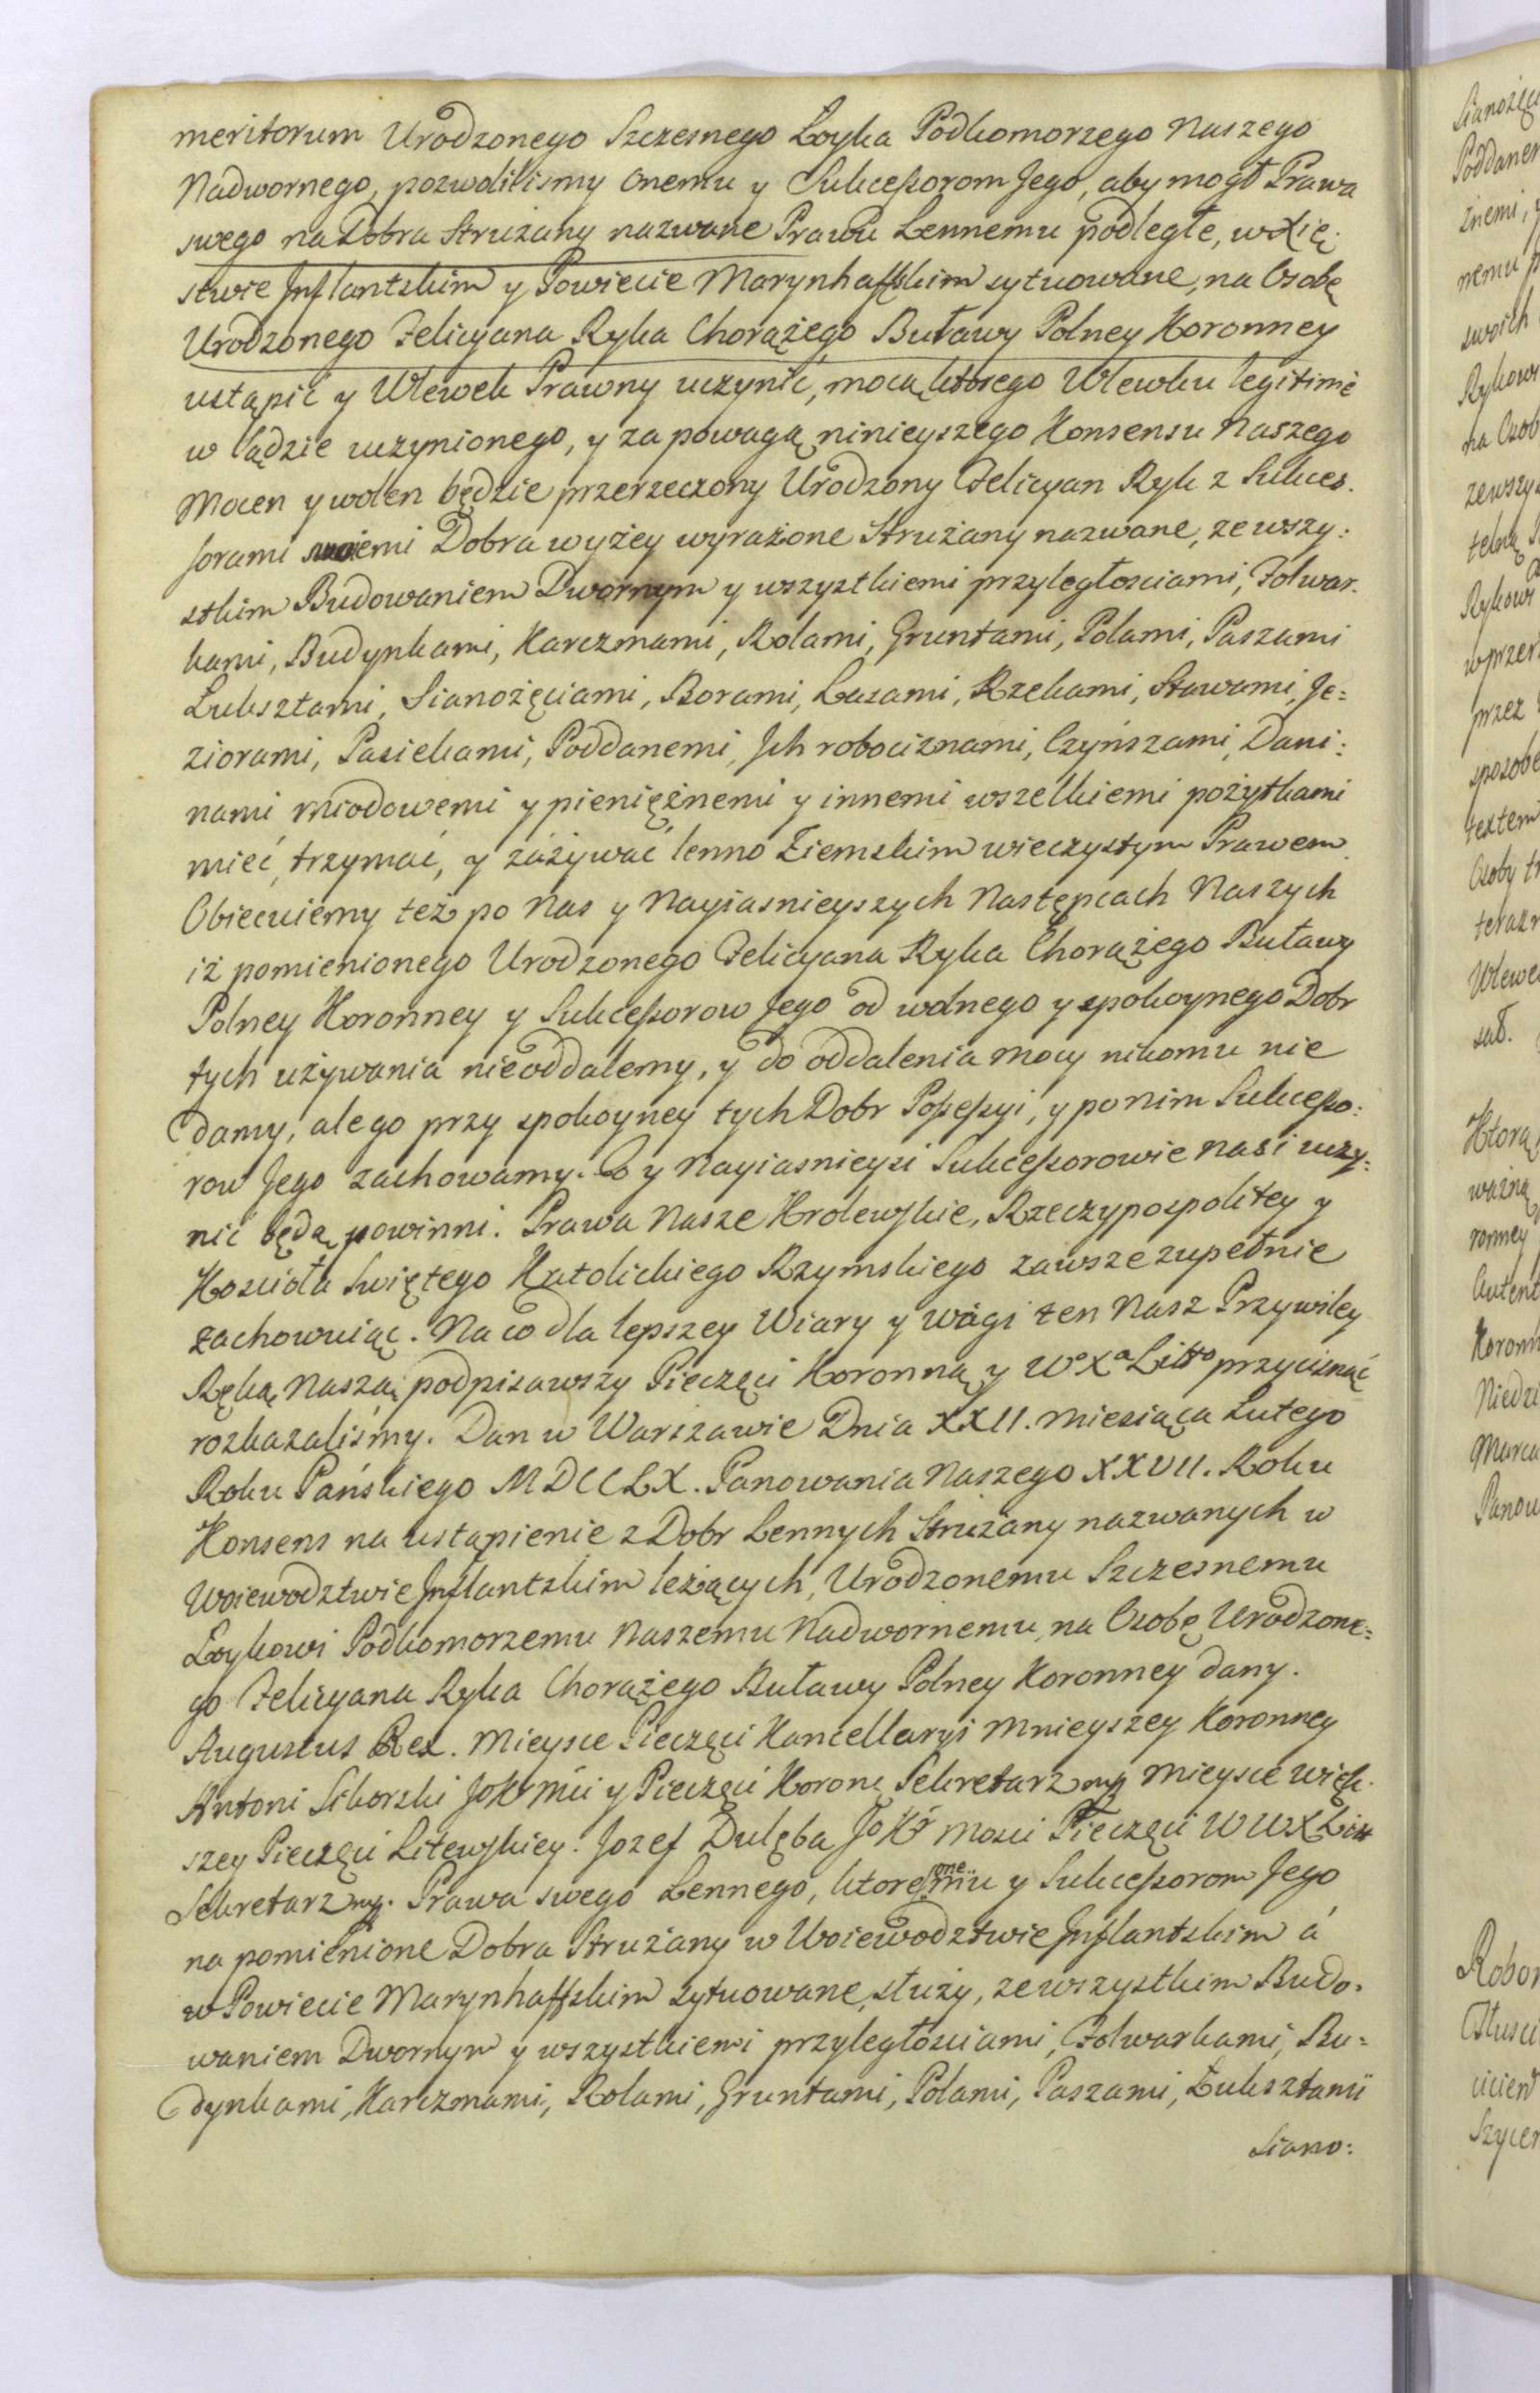 meritorum Urodzonego Szczesnego Łoyka Podkomorzego Naszego
Nadwornego, pozwolilismy onemu y Sukceßorom Jego, aby mogł Prawa
swego na Dobra Strużany nazwane Prawu Lennemu podległe, w Xię:
stwie Inflantskim y Powiecie Marynhaffskim sytuowane, na Osobę
Urodzonego Felicyana Ryka Chorążego Buławy Polney Koronney
ustąpić y Wlewek Prawny uczynić, mocą ktorego Wlewku legitimè
w Sądzie uczynionego, y za powagą ninieyszego Konsensu Naszego
Mocen y wolen będzie przerzeczony Urodzony Felicyan Ryk z Sukces.
sorami swoiemi Dobra wyżey wyrażone Strużany nazwane, ze wszy:
stkim Budowaniem Dwornym y wszystkiemi przyległosciami, Folwar.
kami, Budynkami, Karczmami, Rolami, Gruntami, Polami, Paszami
Luksztami, Sianożęciami, Borami, Lasami, Rzekami, Stawami, Je=
ziorami, Pasiekami, Poddanemi, Jch robociznami, Czyńszami, Dani:
nami miodowemi y pieniężnemi y innemi wszelkiemi pożytkami
mieć, trzymać, y zażywać lenno Ziemskim wieczystym Prawem.
Obiecuiemy też po Nas y Nayiasnieyszych Następcach Naszych
iż pomienionego Urodzonego Felicyana Ryka Chorążego Buławy
Polney Koronney y Sukceßorow Jego od wolnego y spokoynego Dobr
tych używania nieoddalemy, y do oddalenia mocy nikomu nie
damy, ale go przy spokoyney tych Dobr Poßeßyi, y po nim Sukceßo:
row Jego zachowamy. Co y Nayiasnieysi Sukceßorowie Nasi uczy:
nić będą powinni. Prawa Nasze Krolewskie, Rzeczypospolitey y
Koscioła Swiętego Katolickiego Rzymskiego zawsze zupełnie
zachowuiąc. Na co dla lepszey Wiary y wagi ten Nasz Przywiley
Ręką Naszą podpisawszy Pieczęci Koronną y Wo Xa Litto przycisnąć
rozkazaliśmy. Dan w Warszawie Dnia XXII. Miesiąca Lutego
Roku Pańskiego MDCCLX. Panowania Naszego XXVII. Roku
Konsens na ustąpienie z Dobr Lennych Strużany nazwanych w
Woiewodztwie Inflantskim leżących, Urodzonemu Szczesnemu
Łoykowi Podkomorzemu Naszemu Nadwornemu, na Osobę Urodzone=
go Felicyana Ryka Chorążego Buławy Polney Koronney dany.
Augustus Rex. Mieysce Pieczęci Kancellaryi Mnieyszey Koronney
Antoni Sikorski JoKr Mci y Pieczęci Koronę Sekretarz mp Mieysce więk.
szey Pieczęci Litewskiey. Jozef Dulęba Jo Kr Mosci Pieczęci W W X Litt
Sekretarz mp. Prawa swego Lennego, ktore onemu y Sukceßorom Jego
na pomienione Dobra Strużany w Woiewodztwie Inflantskim á
w Powiecie Marynhaffskim sytuowane, służy, ze wszystkim Budo.
waniem Dwornym y wszystkiemi przyległościami, Folwarkami, Bu=
dynkami, Karczmami, Rolami, Gruntami, Polami, Paszami, Łuksztami
Siano:
Sianożęci
Poddanem
nemu
swoich
Rykowi
na Osob
Rykowi
przez
sposobe
textem
Osoby
Wlewe
Ktorą
ważną
ronney
Autent
Koronn
Niedzi
Panow